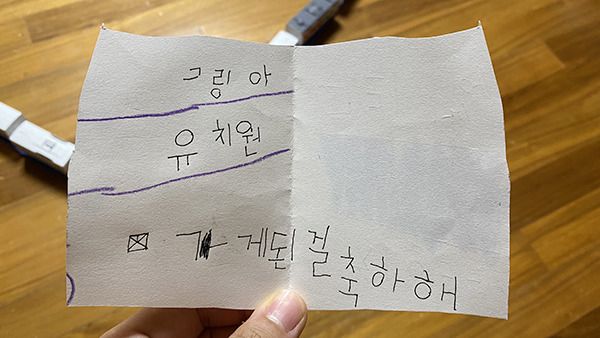 그링아
유치원
☒ 가게된걸축하해